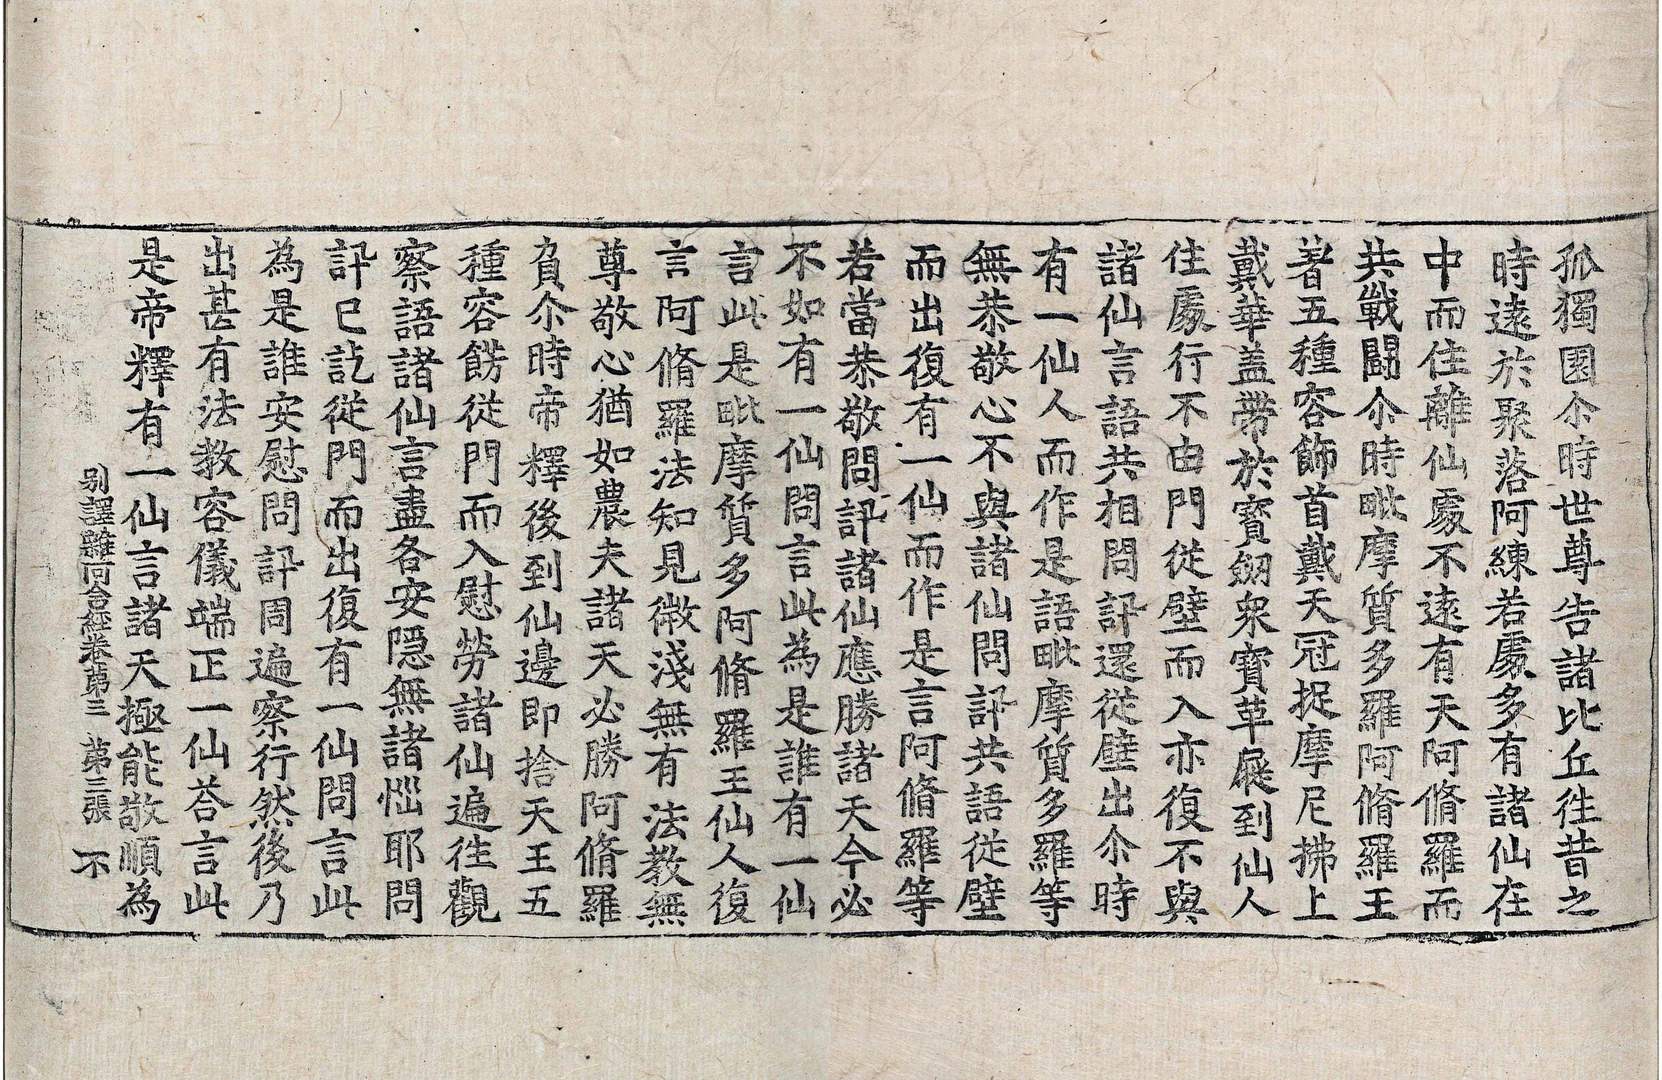 孤獨園尒時世尊告諸比丘徃昔之
時逺於聚落阿練若�Ꮠ多有諸仙在
中而住離仙處不逺有天阿脩羅而
共戰闘尒時毗摩質多羅阿脩羅王
著五種容飾首戴天冠捉摩尼拂上
戴華盖帶於寳劒衆寶革屣到仙人
住處行不由門從壁而入亦復不與
諸仙言語共相問訊還從壁出尒時
有一仙人而作是語毗摩質多羅等
無恭敬心不與諸仙問訊共語從壁
而出復有一仙而作是言阿脩羅等
若當恭敬問訊諸仙應勝諸天今必
不如有一仙問言此為是誰有一仙
言此是毗摩質多阿脩羅王仙人復
言阿脩羅法知見微淺無有法教無
尊敬心猶如農夫諸天必勝阿脩羅
負尒時帝釋後到仙邊即捨天王五
種容餝從門而入慰勞諸仙遍徃觀
察語諸仙言盡各安隱無諸惱耶問
訊已訖從門而出復有一仙問言此
為是誰安慰問訊周遍察行然後乃
出甚有法教容儀端正一仙荅言此
是帝釋有一仙言諸天極能敬順為
別譯雜阿含經卷第三 第三張 不